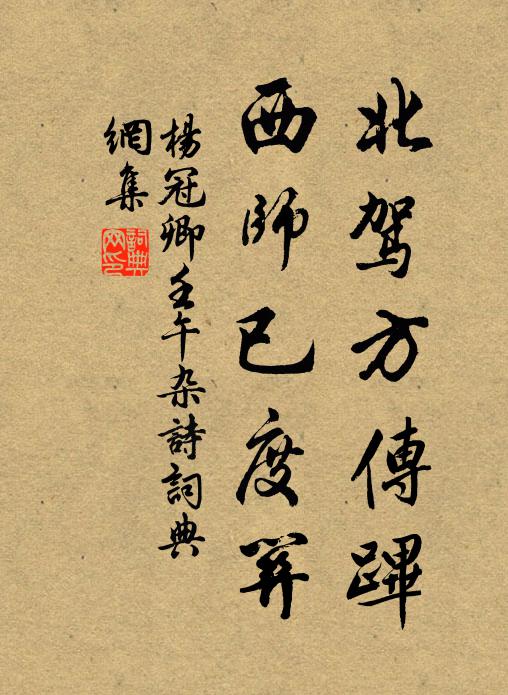 北駕方傳蹕
西師已度筓
楊冠卿壬午杂詩詞典
網集
詞典
网印